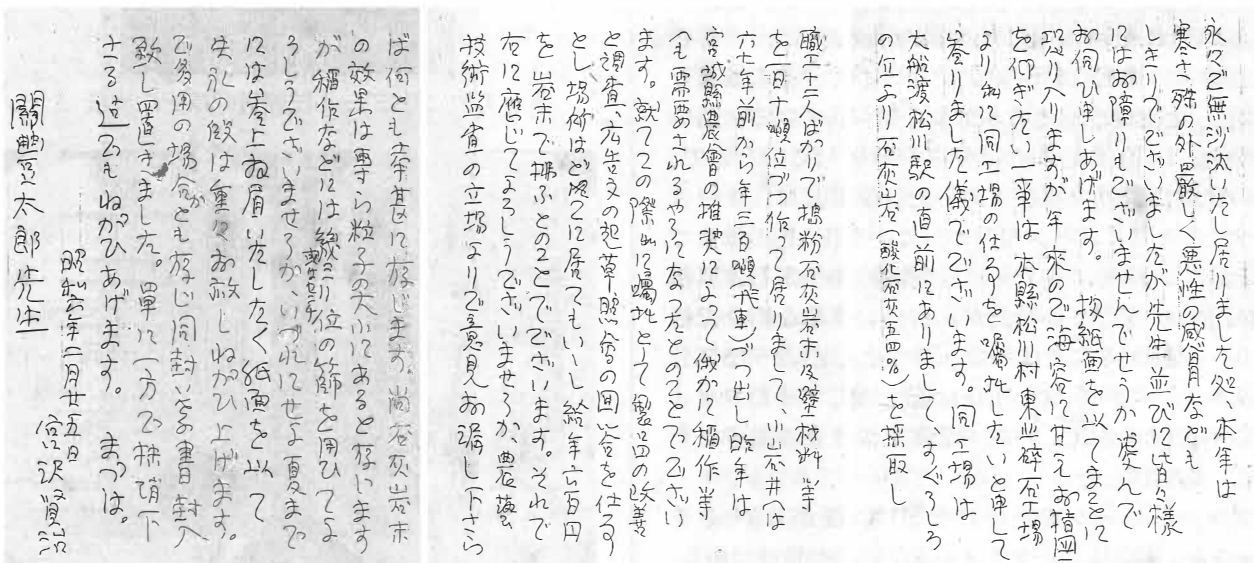 永々ご無沙汰いたし居りました処、本年は
寒さ殊の外厳しく悪性の感冒なども
ございましたが先生並びに皆々様
にはお障りもございませんでせうか虔んで
お伺ひ申しあげます。扨紙面を以てまことに
恐れ入りますが年来のご海容に甘えお指図
を仰ぎたい一事は本縣松川村東北砕石工場
より私に同工場の仕事を嘱託したいと申して
参りました儀でございます。同工場は
大船渡松川駅の直前にありまして、すぐうしろ
の丘より石灰岩(酸化石灰五四%)を採取し
職工十二人ばかりで搗粉石灰岩末及壁材料等
を一日十噸位づつ作って居りまして、小岩井へは
六七年前から年三百噸(三十車)づつ出し昨年は
宮城縣農會の推奨によって俄かに稲作等
へも需要されるやうになったとのことでござい
ます。就てこの際私に嘱託として製品の改善
と調査、広告文の起草照会の回答を仕る
とし場所はどこに居てもいゝし給年六百円
を岩末で払ふとのことでございます。それで
右に應じてよろしうございませうか、農藝
技術監査の立場よりご意見お漏し下さら
ば何とも幸甚に存じます。尚石灰岩末
の效果は専ら粒子の大小にあると存じます
が稲作などには 位の篩を用ひてよ
ろしうございませうか いづれにせよ夏まで
には参上お眉いたしたく紙面を以て
失礼の段は重々お赦しねがひ上げます。
ご多用の場合とも存じ同封葉書封入
致し置きました。單に一方ご抹消下
さる迄でもねがひあげます。まづは。
昭和六年二月廿五日 宮沢賢治
關豊太郎先生